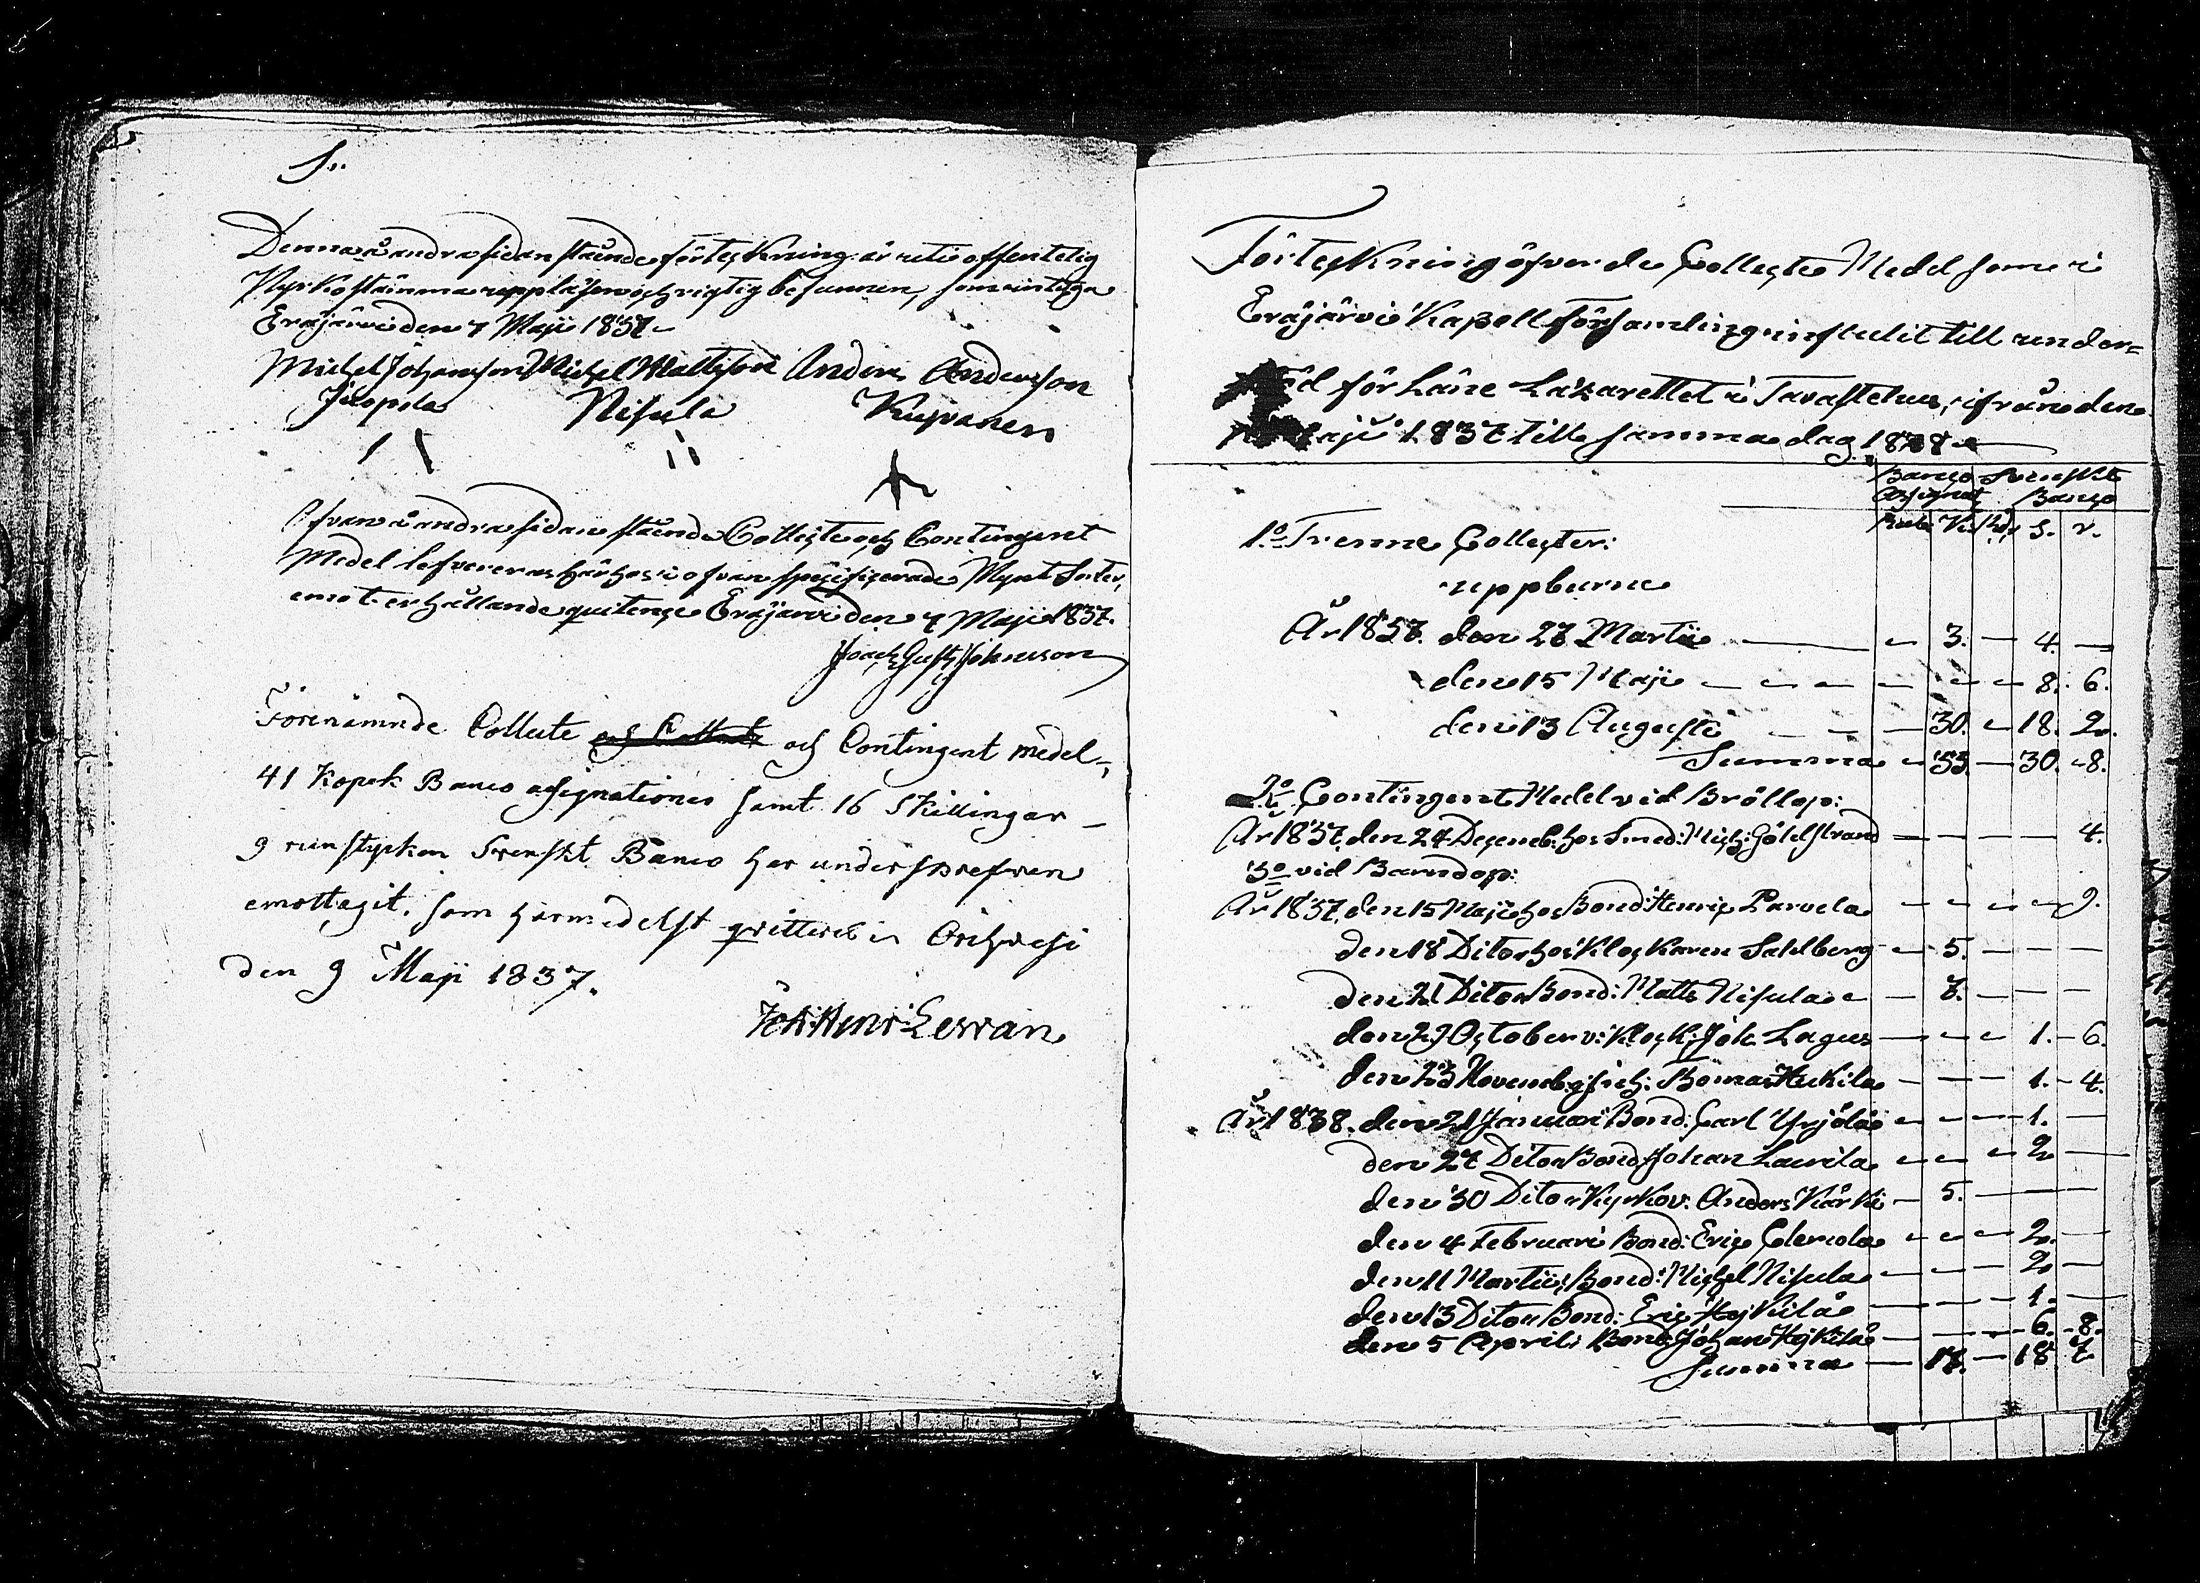 S.
Denna å andra sidan stående förteckning är uti offentelig
Kyrkostämma uppläsen och rigtig befunnen, som intyga
Eräjärvi den 7 Maji 1837.
Michel Johansson Michel Mattsson Anders Andersson
Juopola Nisula Kujvanen
Ofvan å andra sidan stående Collecte och Contingent
Medel lefvereras härhos i ofvan specificerade Mynt Sorter,
emot erhållande quitence Eräjärvi den 7 Maji 1837.
Joach Gust Johnsson
Förenämnde Collecte och Collect och Contingent medel,
41 Kopek Banco assignationer samt 16 Skillingar
9 runstycken Svenskt Banco har underskrefven
emottagit, som härmedelst qvitteres i Orihvesi
den 9 Maji 1837.
Joh: Henr: Lewan
Förteckning öfver de Collecte Medel som i
Eräjärvi Kapell församling influtit till under-
stöd för Läne Lazarettet i Tavastehus, ifrån den
Maji 1837 till samma dag 1838
Banco Svenskt
Assignat Banco
Rub. Kop. Rd. S. r.
1:o Trenne Collecter:
uppburne
År 1837. den 27 Martii — 3. — 4. —
den 15 Maji — — — 8. 6.
den 13 Augusti — 30. — 18. 2.
Summa — 33. — 30. 8.
2:o Contingent Medel vid Bröllop:
År 1837. den 24 Decemb: hos Smed: Mich: Götelstrand — — — — 4.
3:o vid Barndop:
År 1837. den 15 Maji hos Bond: Henric Parvela — — — — 9.
den 18 Dito hos Klockaren Sahlberg — 5. — — —
den 21 Dito Bond: Matts Nisula — 7. — — —
den 29 October v: Klock: Joh: Lagus — — — 1. 6.
den 23 Novemb: Inh: Thomas Huikila — — — 1. 4.
År 1838. den 21 Januari Bond: Carl Yrjölä — — — 1. —
den 27 Dito Bond: Johan Laurila — — — 2. —
den 30 Dito Kyrkov: Anders Kärki — 5. — — —
den 4 Februari Bond: Eric Clemola — — — 2. —
den 11 Martii Bond: Michel Nisula — — — 2. —
den 13 Dito Bond: Eric Hejkkilä — — — 1. —
den 5 Aprili Bond: Johan Hejkilä — — — 6. 8.
Summa — 17. — 18 7